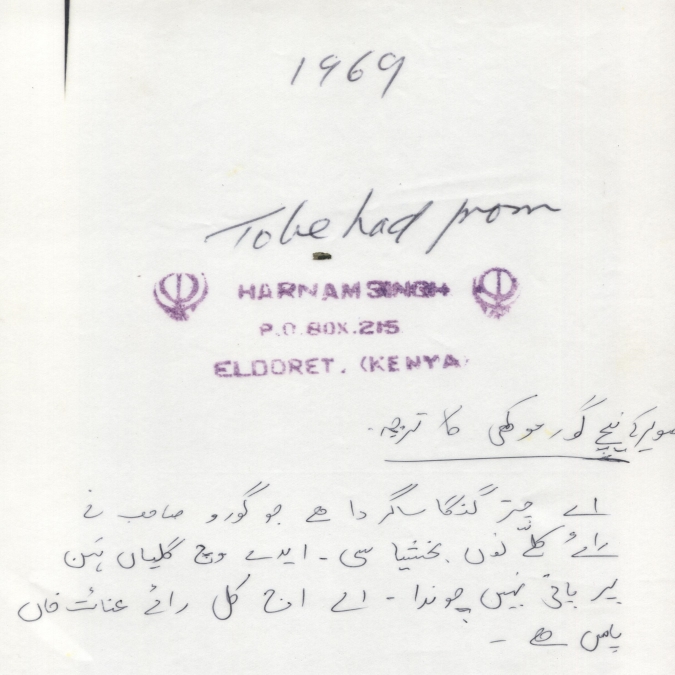 1969
To be had from
HARNAM SINGH
P.O. BOX. 215
ELDORET. (KENYA)
کے نیچے گورموکھی کا ترجمہ۔
اے چتر گنگا ساگر دا ہے جو گورو صاحب نے
رائے کلّے نوں بخشیا سی۔ ایدے وچ گلیاں ہَن
پر پانی نہیں چوندا۔ اے اج کل رائے عنائت خاں
پاس ہے ۔